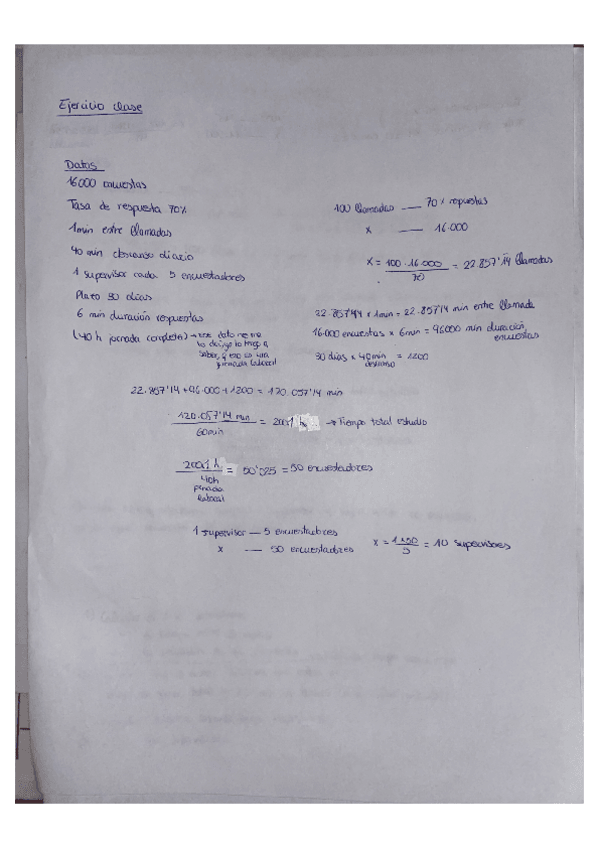 Ejercicio clase
Datos
16000 encuestas
Tasa de respuesta 70%
1 min entre llamadas
40 min descanso diario
1 supervisor cada 5 encuestadores
Plazo 30 días
6 min duración respuestas
(40 h jornada completa) → este dato no me
lo da, yo lo tengo q
saber, q eso es una
jornada laboral
100 llamadas — 70% repuestas
x — 16.000
x = 100 · 16.000 / 70 = 22.857'14 llamadas
22.857'14 x 1min = 22.857'14 min entre llamada
16.000 encuestas x 6min = 96000 min duración
encuestas
30 días x 40min = 1200
descanso
22.857'14 + 96.000 + 1200 = 120.057'14 min
120.057'14 min / 60min = 2001 h → Tiempo total estudio
2001 h / 40h = 50'025 = 50 encuestadores
jornada
laboral
1 supervisor — 5 encuestadores
x — 50 encuestadores
x = 1x50 / 5 = 10 supervisores